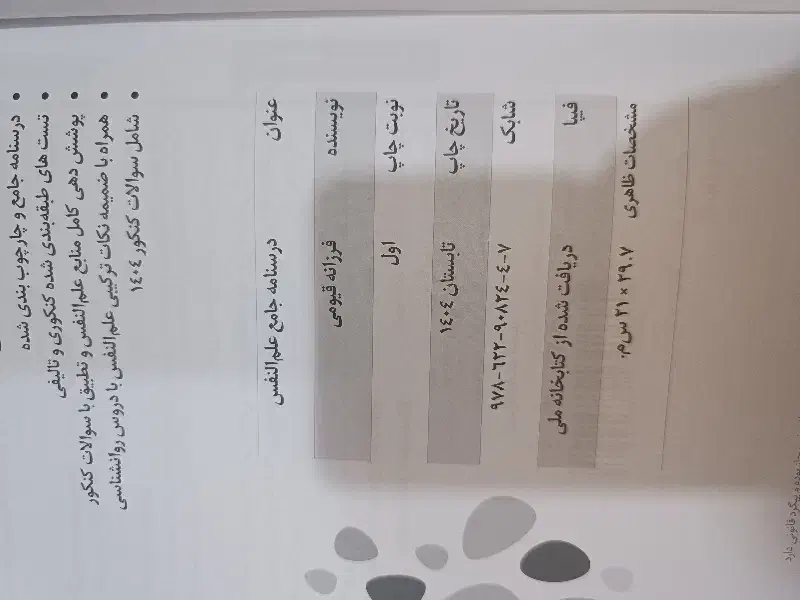 • درسنامه جامع و چارچوب بندی شده
• تست های طبقه‌بندی شده کنکوری و تالیفی
• پوشش دهی کامل منابع علم‌النفس و تطبیق با سوالات کنکور
• همراه با ضمیمه نکات ترکیبی علم‌النفس با دروس روانشناسی
• شامل سوالات کنکور ۱۴۰۴
عنوان درسنامه جامع علم‌النفس
نویسنده فرزانه قیومی
نوبت چاپ اول
تاریخ چاپ تابستان ۱۴۰۴
شابک ۹۷۸-۶۲۲-۹۰۸۲۴-۴-۷
فیپا دریافت شده از کتابخانه ملی
مشخصات ظاهری ۲۱ × ۲۹.۷ س‌م.
پیگرد قانونی دارد